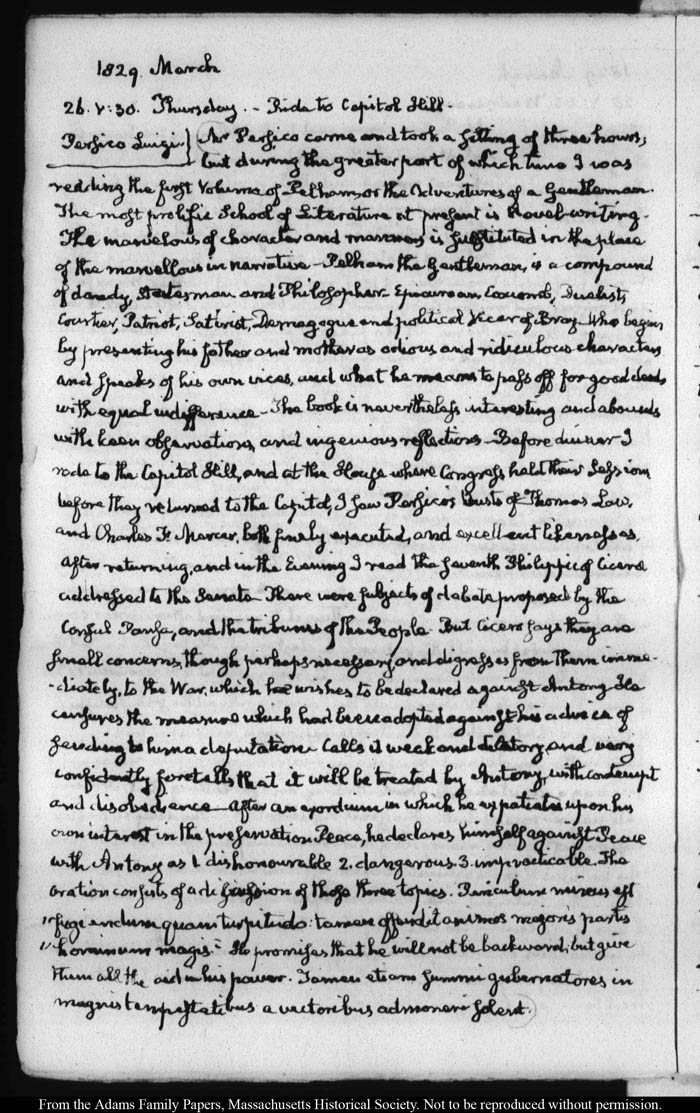 1829. March
26. V:30. Thursday. – Ride to Capitol Hill.
Persico Luigi} Mr Persico came and took a sitting of three hours;
but during the greater part of which time I was
reading the first Volume of Pelham, or the Adventures of a Gentleman.
The most prolific School of Literature at present is Novel-writing.
The marvelous of character and manners is substituted in the place
of the marvellous in narrative – Pelham the Gentleman, is a compound
of dandy, Statesman and Philosopher – Epicurean, Coxcomb, Duelist,
Courtier, Patriot, Satirist, Demagogue and political Vicar of Bray – Who begins
by presenting his father and mother as odious and ridiculous characters
and speaks of his own vices, and what he means to pass off for good deeds
with equal indifference – The book is nevertheless interesting and abounds
with keen observations, and ingenious reflections – Before dinner I
rode to the Capitol Hill, and at the House where Congress held their Session
before they returned to the Capitol, I saw Persico's busts of Thomas Law,
and Charles F. Mercer, both finely executed, and excellent likenesses.
After returning, and in the Evening I read the seventh Philippic of Cicero
addressed to the Senate – There were subjects of debate proposed by the
Consul Pansa, and the tribunes of the People. But Cicero says they are
small concerns, though perhaps necessary, and digresses from them imme-
-diately, to the War, which he wishes to be declared against Antony. He
censures the measure which had been adopted against his advice of
sending to him a deputation – Calls it weak and dilatory, and very
confidently foretells that it will be treated by Antony, with contempt
and disobedience – After an exordium in which he expatiates upon his
own interest in the preservation Peace, he declares himself against Peace
with Antony as 1. dishonourable 2. dangerous. 3. impracticable. The
oration consists of a discussion of those three topics. Periculum minus est
"fugiendum quam turpitudo: tamen offendit animos majoris partis
"hominum magis." He promises that he will not be backward, but give
them all the aid in his power. Tamen etiam summi gubernatores in
magnis tempestatibus a vectoribus admoneri solent.
From the Adams Family Papers, Massachusetts Historical Society. Not to be reproduced without permission.